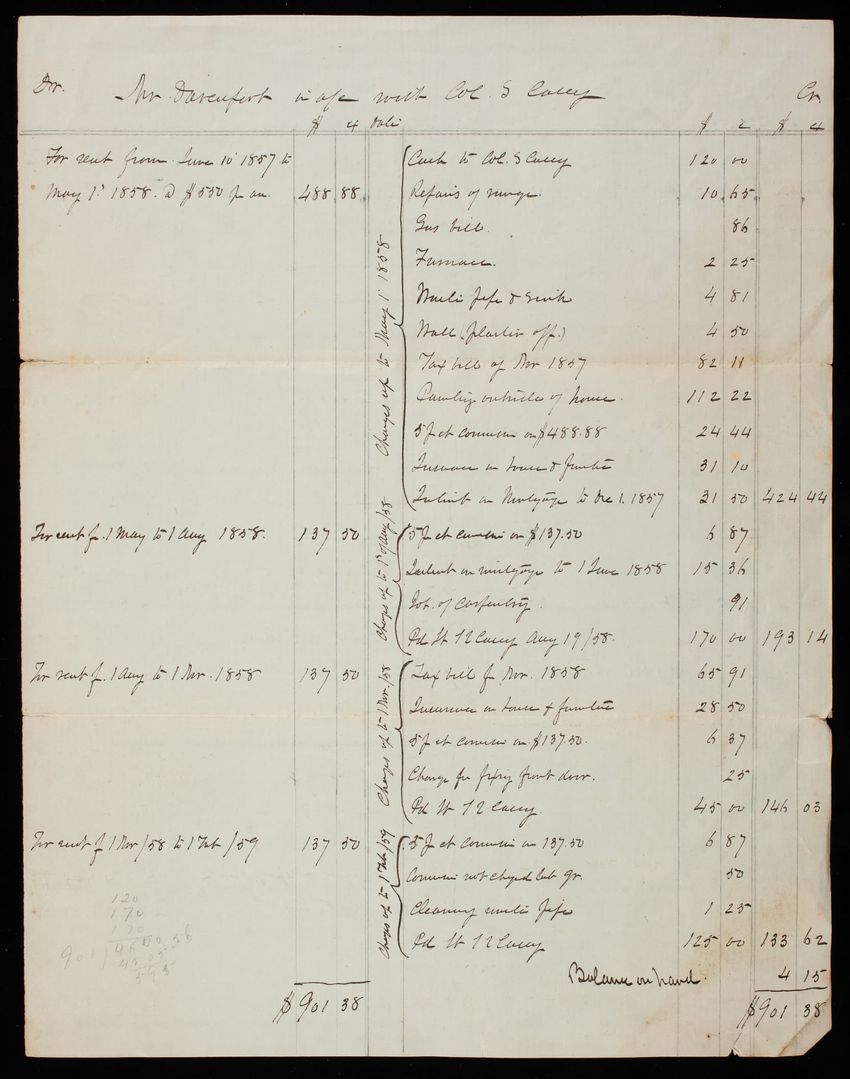 Dr. Mr. Davenport in a/c with Col. S Casey Cr.
$ ¢ Date $ ¢ $ ¢
For rent from June 10 1857 to
May 1st 1858. @ $550 p an. 488 88
Charges up to May 1st 1858
Cash to Col. S Casey 120 00
Repairs of range. 10 65
Gas bill. 86
Furnace. 2 25
Waste pipe & sink 4 81
Wall (plaster off.) 4 50
Tax bill of Nov 1857 82 11
Painting outside of house. 112 22
5 p ct commission on $488.88 24 44
Insurance on house & furniture 31 10
Interest on Mortgage to Dec 1. 1857 31 50 424 44
For rent f. 1 May to 1 Aug 1858. 137 50
Charges up to 1st of Aug/58
5 p ct commission on $137.50 6 87
Interest on mortgage to 1 June 1858 15 36
Job. of carpentry. 91
Pd Lt T L Casey Aug 19/58. 170 00 193 14
For rent f. 1 Aug to 1 Nov. 1858 137 50
Charges up to 1 Nov./58
Tax bill f Nov. 1858 65 91
Insurance on house & furniture 28 50
5 p ct commission on $137.50. 6 37
Charge for fixing front door. 25
Pd Lt T L Casey 45 00 146 03
For rent f 1 Nov/58 to 1 Feb/59 137 50
Charges up to 1 Feb/59
5 p ct commission on 137.50 6 87
Commission not charged last qr. 50
Cleaning waste pipe 1 25
Pd Lt T L Casey 125 00 133 62
Balance on hand. 4 15
$901 38 $901 38
120
170
170
901